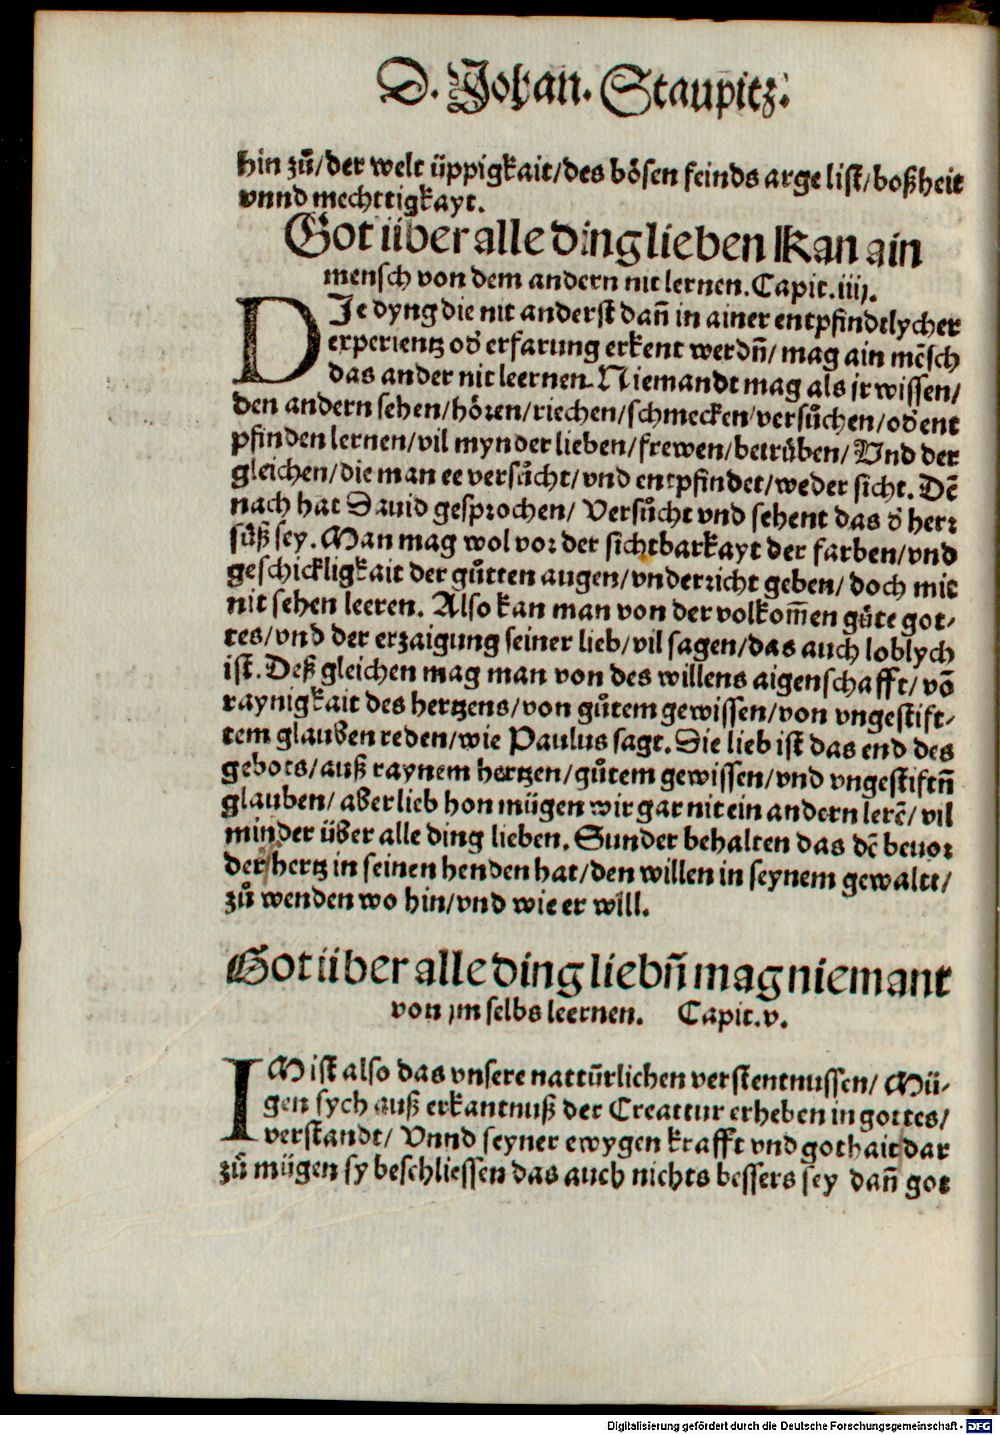 D. Johan. Staupitz.
hin zů/der welt üppigkait/des bösen feinds arge list/boßheit
vnnd mechttigkayt.
Got über alle ding lieben Kan ain
mensch von dem andern nit lernen. Capit. iiij.
DIe dyng die nit anderst dañ in ainer entpfindtlycher
experientz od̕ erfarung erkent werdñ/ mag ain mēsch
das ander nit leernen. Niemandt mag als jr wissen/
den andern sehen/hören/riechen/schmecken/versůchen/od̕ ent
pfinden lernen/vil mynder lieben/frewen/betrůben/ Vnd der
gleichen/die man ee versůcht/vnd entpfindet/weder sicht. Dē
nach hat Dauid gesprochen/ Versůcht vnd sehent das d̕ herr
sůß sey. Man mag wol vor der sichtbarkayt der farben/vnd
geschickligkait der gůtten augen/vnderricht geben/ doch mit
nit sehen leeren. Also kan man von der volkom̄en gůte got⸗
tes/vnd der erzaigung seiner lieb/vil sagen/das auch loblych
ist. Deß gleichen mag man von des willens aigenschafft/ vō
raynigkait des hertzens/von gůtem gewissen/von vngestift⸗
tem glauben reden/wie Paulus sagt. Die lieb ist das end des
gebots/auß raynem hertzen/gůtem gewissen/vnd vngestiftñ
glauben/ aber lieb hon mügen wir gar nit ein andern lerē/ vil
minder über alle ding lieben. Sunder behalten das dē beuor
der hertz in seinen henden hat/den willen in seynem gewaltt/
zů wenden wo hin/vnd wie er will.
Got über alle ding liebñ mag niemant
von jm selbs leernen. Capit. v.
IM ist also das vnsere nattůrlichen verstentnussen/ Mü⸗
gen sych auß erkantnuß der Creattur erheben in gottes/
verstandt/ Vnnd seyner ewygen krafft vnd gothait dar
zů mügen sy beschliessen das auch nichts bessers sey dañ got
Digitalisierung gefördert durch die Deutsche Forschungsgemeinschaft - DFG